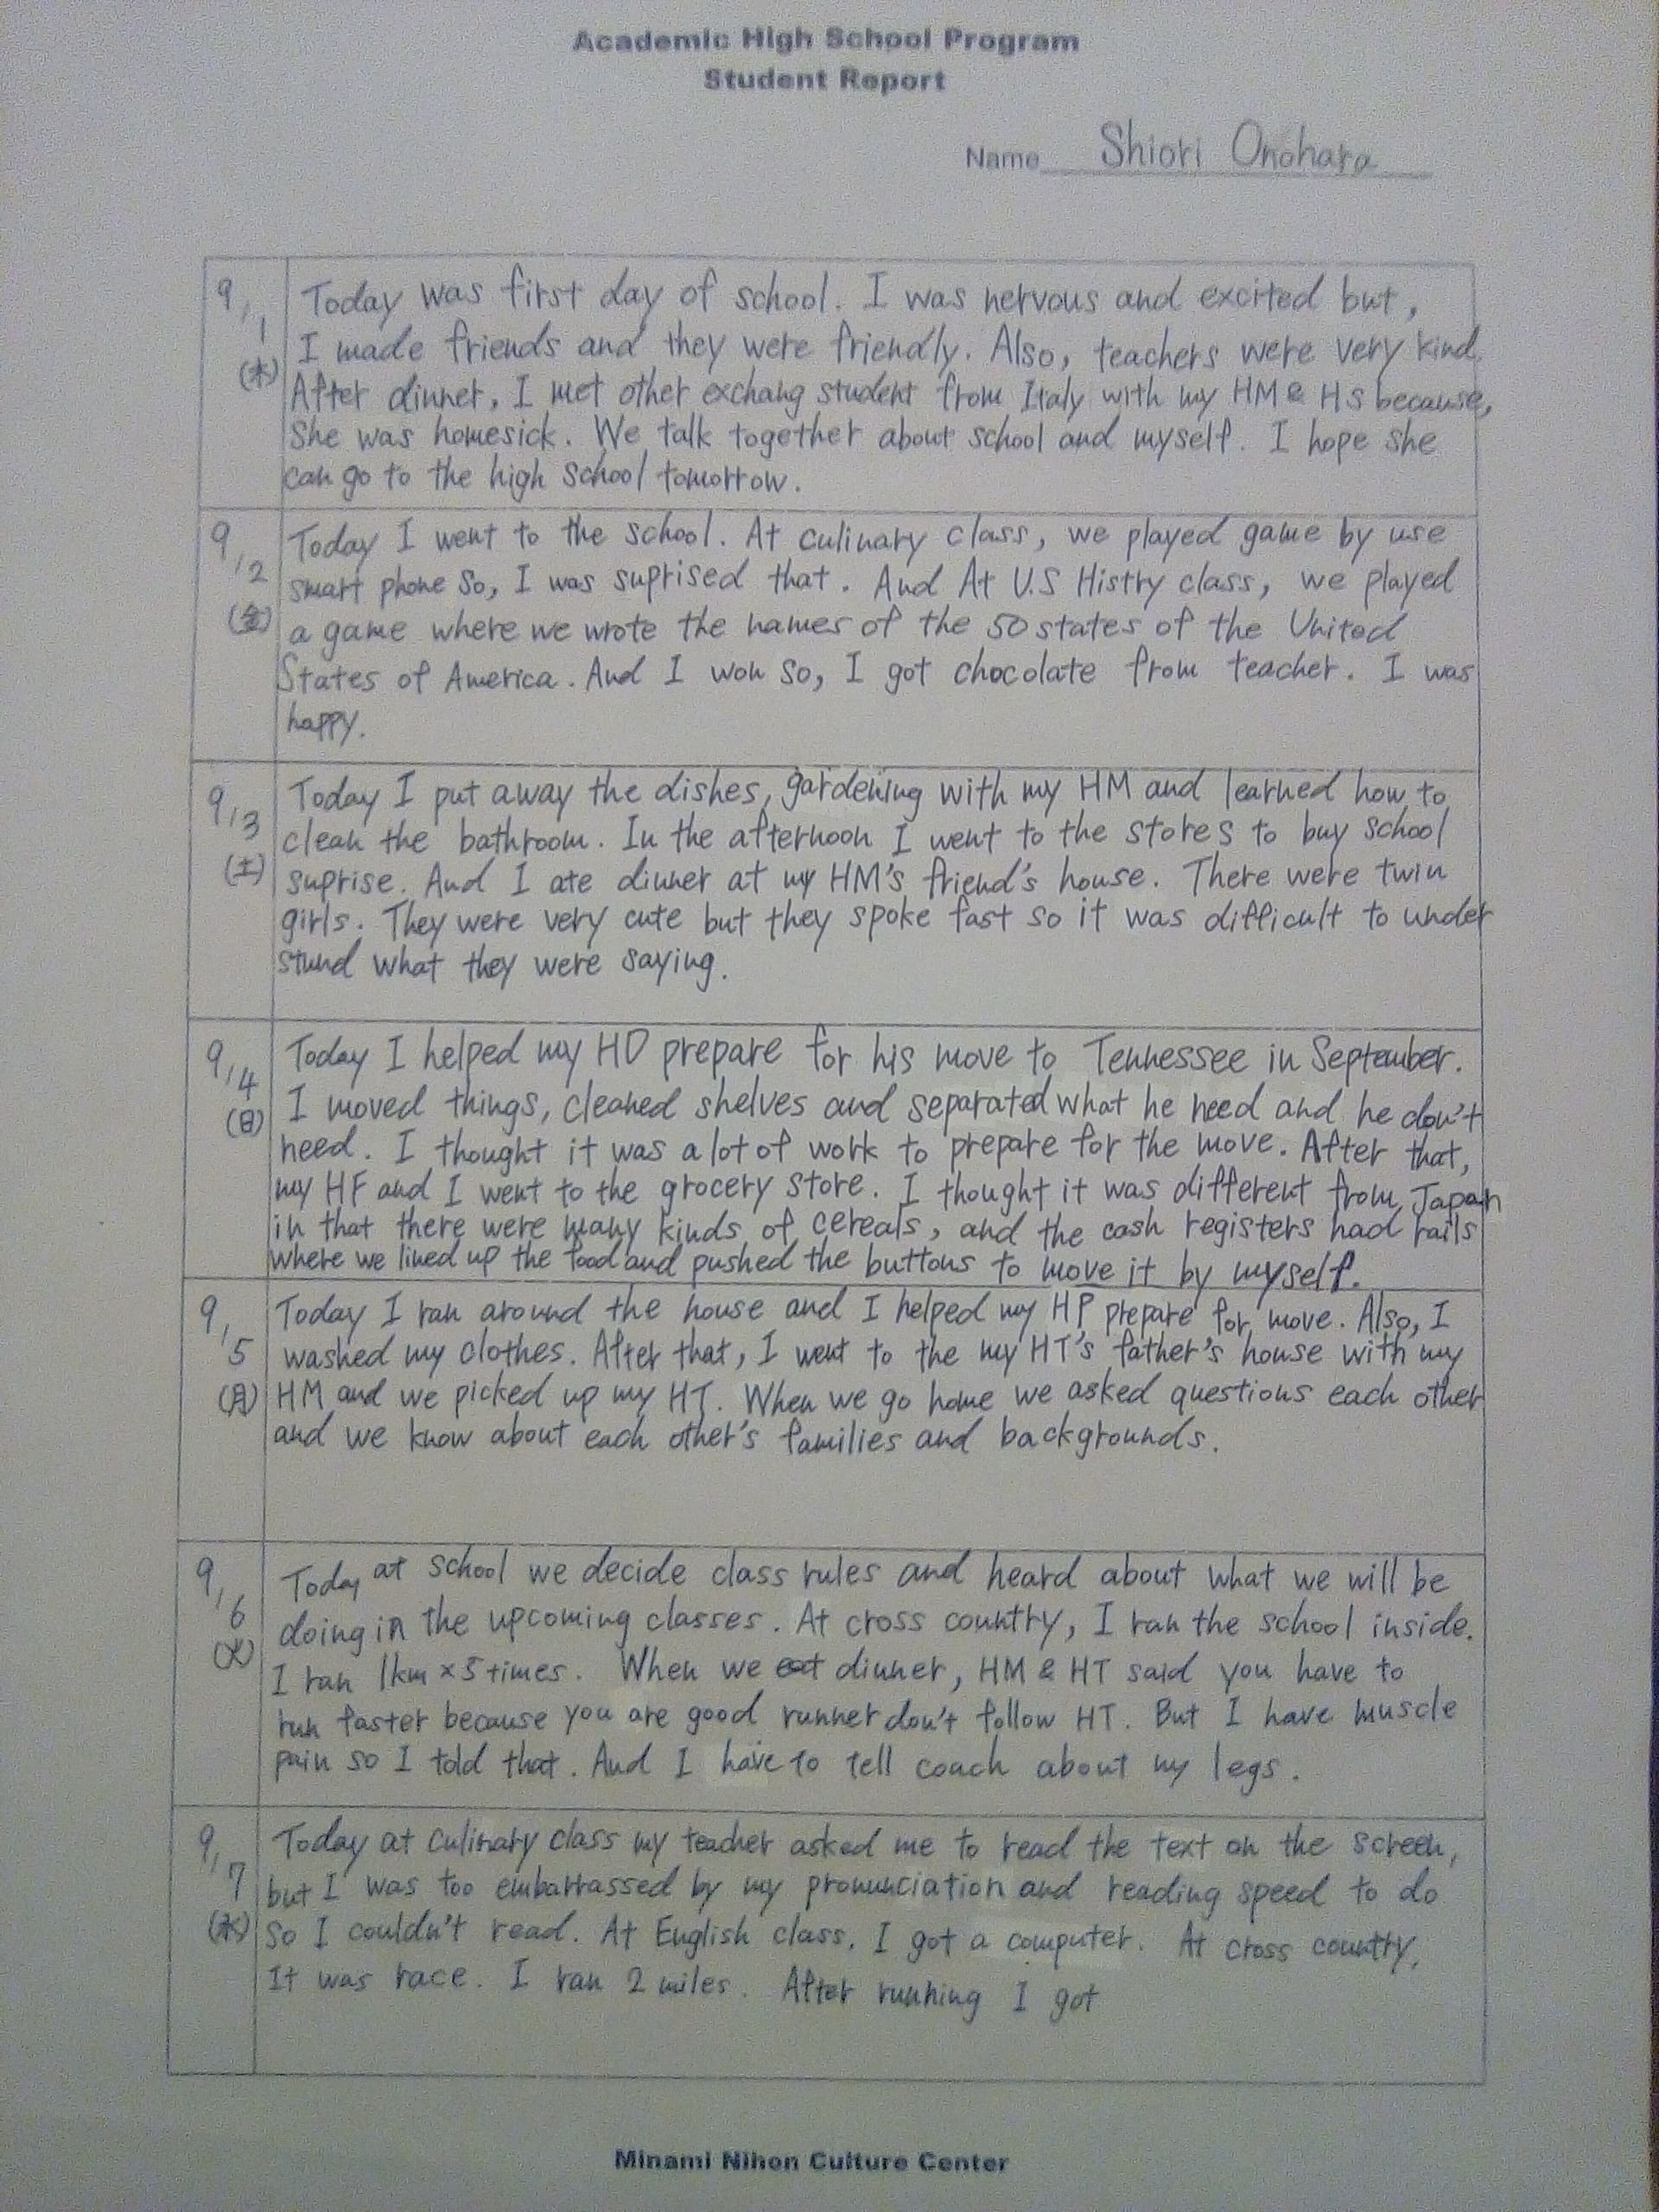 Academic High School Program
Student Report
Name Shiori Onohara
9/1 (木)
Today was first day of school. I was nervous and excited but,
I made friends and they were friendly. Also, teachers were very kind.
After dinner, I met other exchang student from Italy with my HM & HS because,
She was homesick. We talk together about school and myself. I hope she
can go to the high school tomorrow.
9/2 (金)
Today I went to the school. At culinary class, we played game by use
smart phone So, I was suprised that. And At U.S Histry class, we played
a game where we wrote the names of the 50 states of the United
States of America. And I won so, I got chocolate from teacher. I was
happy.
9/3 (土)
Today I put away the dishes, gardening with my HM and learned how to
clean the bathroom. In the afternoon I went to the stores to buy school
suprise. And I ate dinner at my HM's friend's house. There were twin
girls. They were very cute but they spoke fast so it was difficult to under
stund what they were saying.
9/4 (日)
Today I helped my HD prepare for his move to Tennessee in September.
I moved things, cleaned shelves and separated what he need and he don't
need. I thought it was a lot of work to prepare for the move. After that,
my HF and I went to the grocery store. I thought it was different from Japan
in that there were many kinds of cereals, and the cash registers had rails
where we lined up the food and pushed the buttons to move it by myself.
9/5 (月)
Today I ran around the house and I helped my HP prepare for move. Also, I
washed my clothes. After that, I went to the my HT's father's house with my
HM and we picked up my HT. When we go home we asked questions each other
and we know about each other's families and backgrounds.
9/6 (火)
Today at school we decide class rules and heard about what we will be
doing in the upcoming classes. At cross country, I ran the school inside.
I ran 1km × 5 times. When we eat dinner, HM & HT said you have to
run faster because you are good runner don't follow HT. But I have muscle
pain so I told that. And I have to tell coach about my legs.
9/7 (水)
Today at culinary class my teacher asked me to read the text on the screen,
but I was too embarrassed by my pronunciation and reading speed to do
So I couldn't read. At English class, I got a computer. At cross country,
It was race. I ran 2 miles. After running I got
Minami Nihon Culture Center